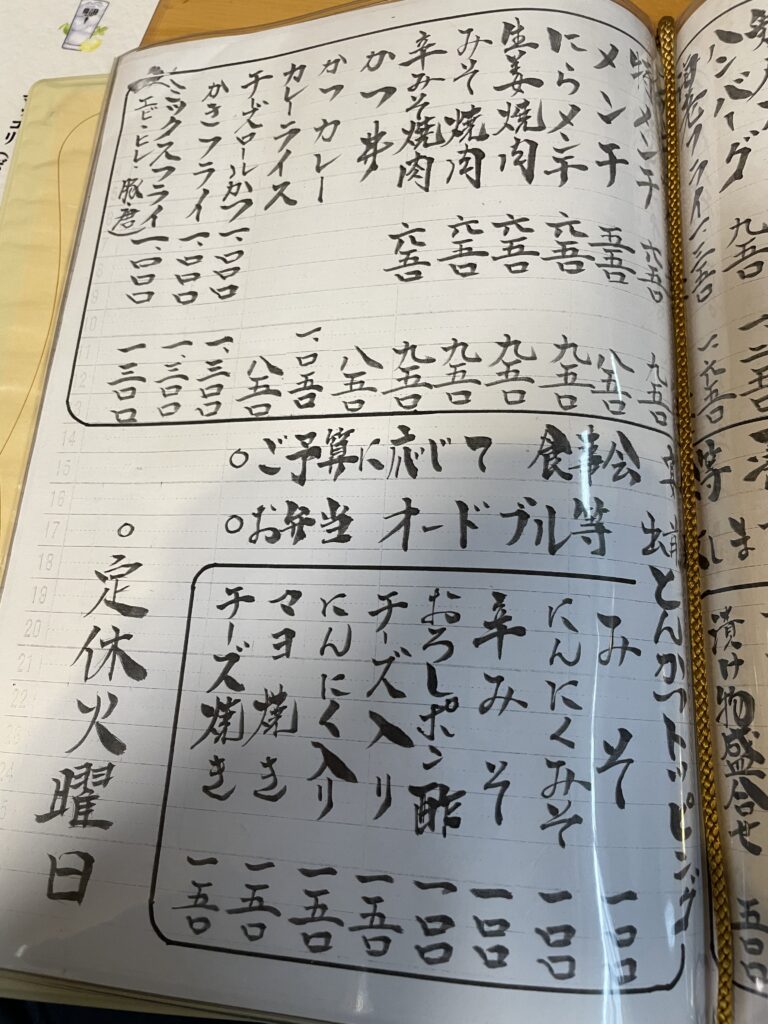 ハンバーグ 九五〇
漬け物盛合せ 五〇〇
特メンチ 六五〇 九五〇
メンチ 五五〇 八五〇
にらメンチ 六五〇 九五〇
生姜焼肉 六五〇 九五〇
みそ焼肉 六五〇 九五〇
辛みそ焼肉 六五〇 九五〇
かつ丼 八五〇
かつカレー 一、〇五〇
カレーライス 八五〇
チーズロールかつ 一、〇〇〇 一、三〇〇
かきフライ 一、〇〇〇 一、三〇〇
ミックスフライ 一、〇〇〇 一三〇〇
エビ・ヒレ・豚唐
○ご予算に応じて 食事会
○お弁当 オードブル等
とんかつトッピング
みそ 一〇〇
にんにくみそ 一〇〇
辛みそ 一〇〇
おろしポン酢 一〇〇
チーズ入り 一五〇
にんにく入り 一五〇
マヨ焼き 一五〇
チーズ焼き 一五〇
○定休火曜日